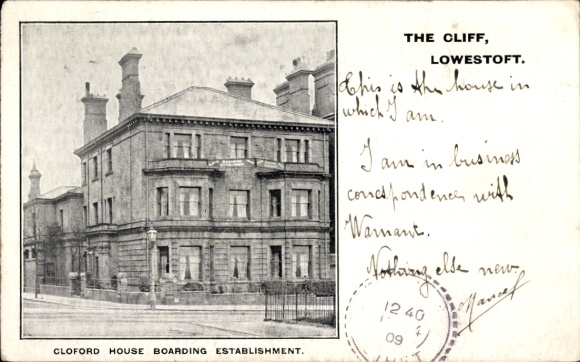 THE CLIFF,
LOWESTOFT.
This is the house in
which I am.
I am in business
correspondence with
Warnant.
Nothing else new
Marcel
12 40
09
CLOFORD HOUSE BOARDING ESTABLISHMENT.